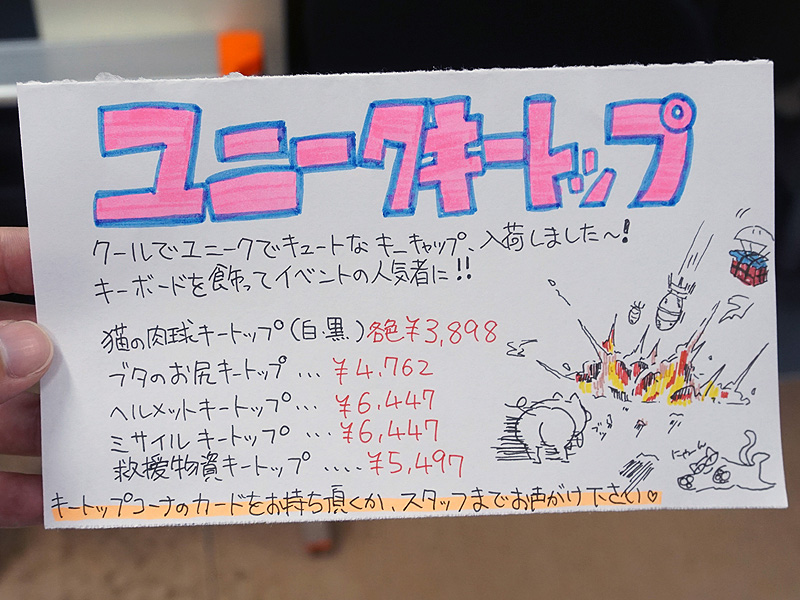 ユニークキートップ
クールでユニークでキュートなキーキャップ、入荷しました〜!
キーボードを飾ってイベントの人気者に!!
猫の肉球キートップ(白・黒)各色¥3,898
ブタのお尻キートップ…¥4,762
ヘルメットキートップ…¥6,447
ミサイルキートップ…¥6,447
救援物資キートップ….¥5,497
にゃーん
キートップコーナのカードをお持ち頂くか、スタッフまでお声がけ下さい♡